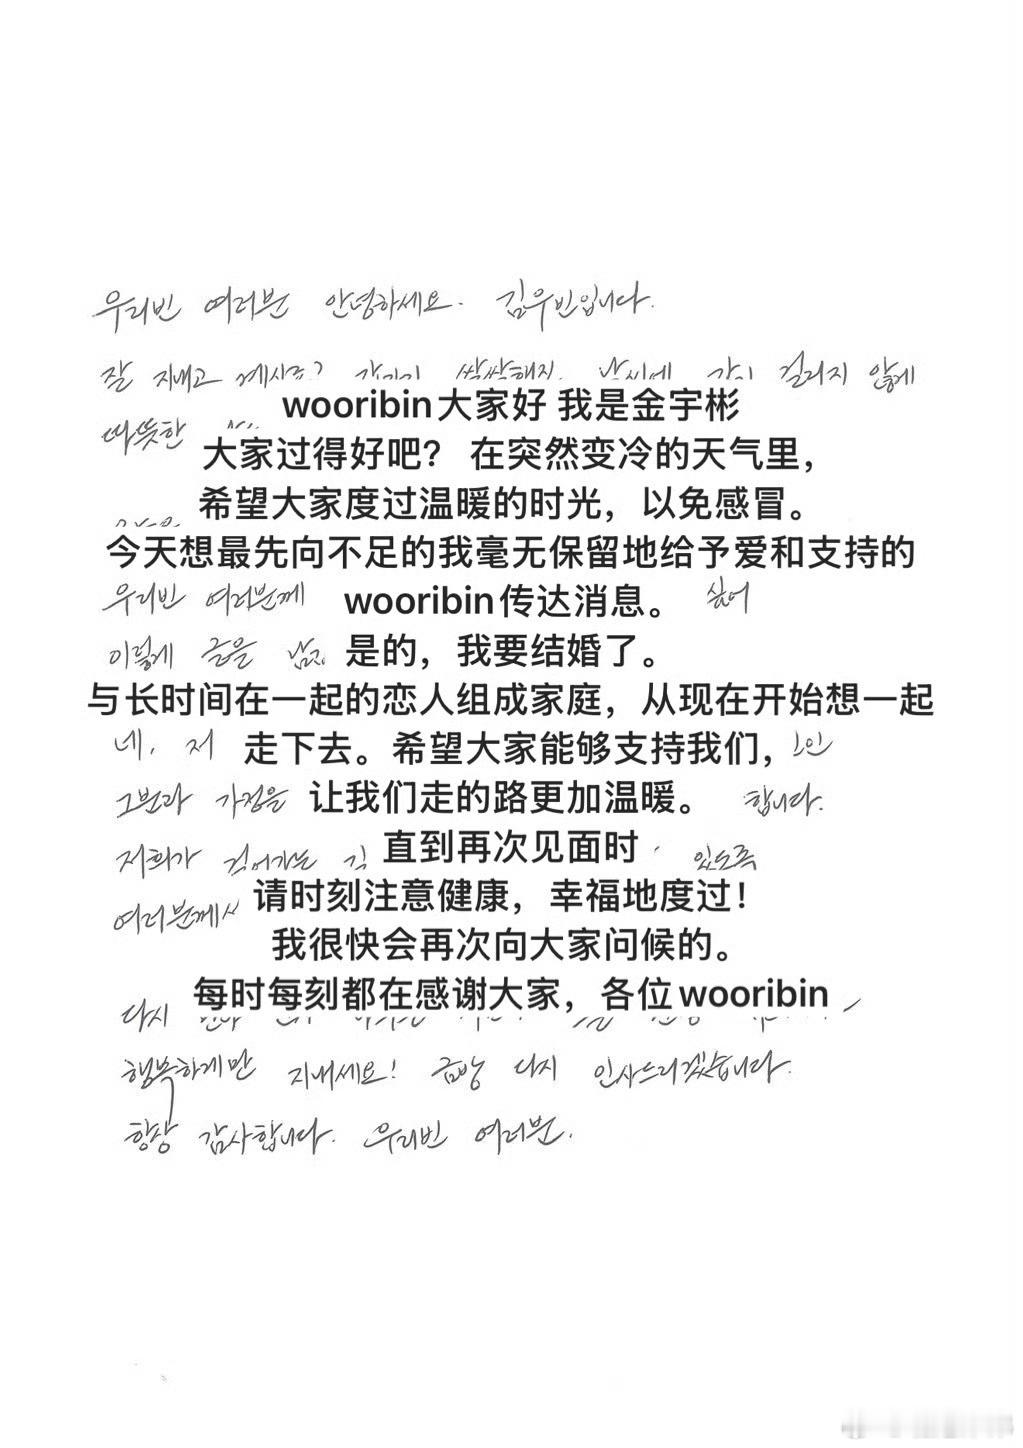 우리빈 여러분 안녕하세요. 김우빈입니다.
잘 지내고 계시죠? 걸리지 않게
wooribin大家好 我是金宇彬
따뜻한
大家过得好吧? 在突然变冷的天气里，
希望大家度过温暖的时光，以免感冒。
今天想最先向不足的我毫无保留地给予爱和支持的
우리빈 여러분께 wooribin传达消息。 싶어
이렇게 글을 是的，我要结婚了。
与长时间在一起的恋人组成家庭，从现在开始想一起
네, 저 走下去。希望大家能够支持我们，
그분과 가정을 让我们走的路更加温暖。 합니다.
저희가 걸어가는 直到再次见面时 있도록
여러분께서 请时刻注意健康，幸福地度过！
我很快会再次向大家问候的。
每时每刻都在感谢大家，各位wooribin
다시
행복하게만 지내세요! 금방 다시 인사드리겠습니다.
항상 감사합니다. 우리빈 여러분.